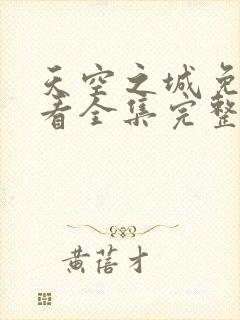 天空之城免
看全集完整
黄蓓才